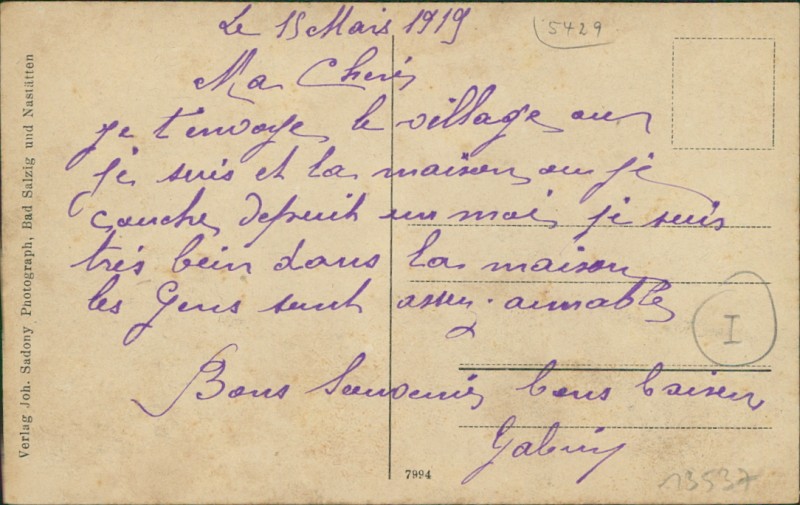 Le 15 Mars 1919
5429
Ma Cheri
je t'envoye le village ou
je suis et la maison ou je
couche depuit un mois je suis
tres bein dans la maison
les Gens sont assez aimable
I
Bons Souvenir bons baiser
13537
7994
Verlag Joh. Sadony Photograph, Bad Salzig und Nastätten